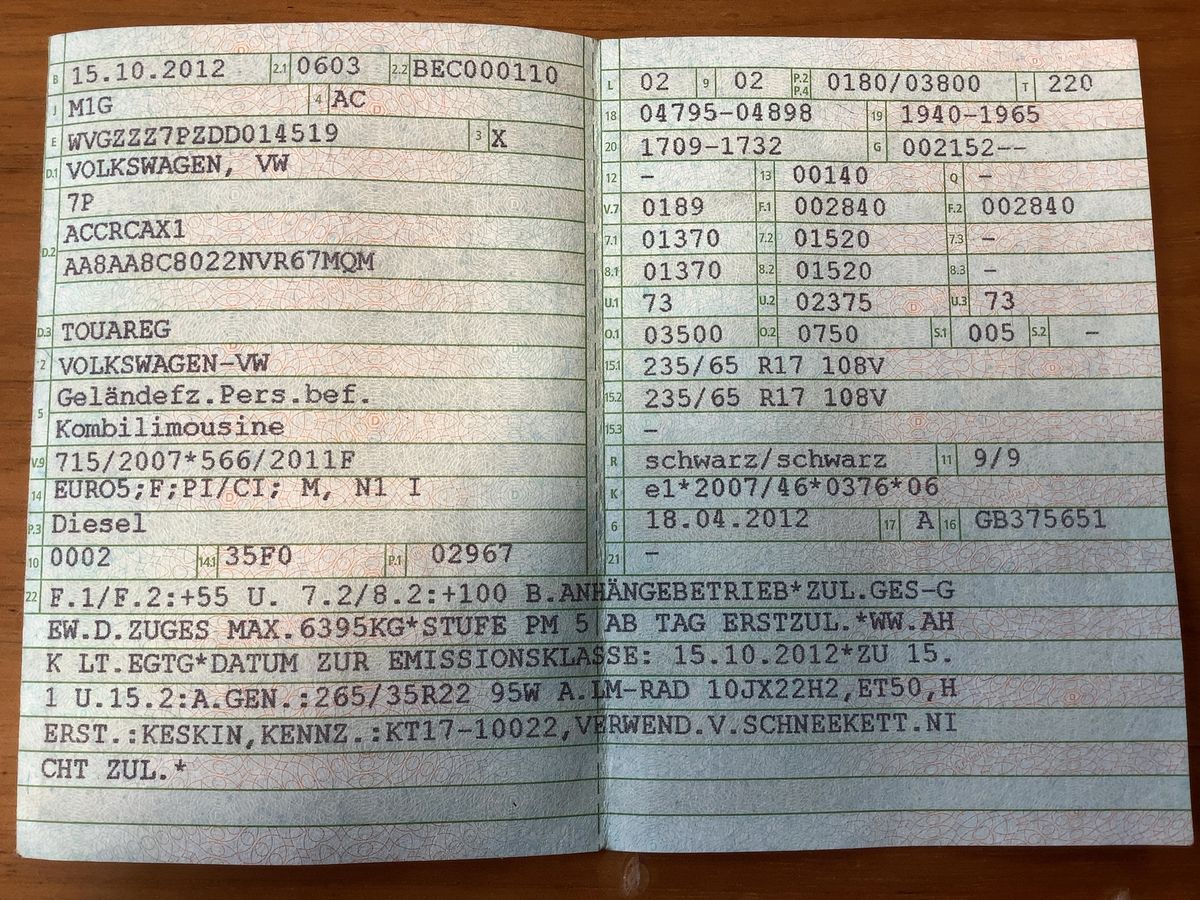 B 15.10.2012 2.1 0603 2.2 BEC000110
J M1G 4 AC
E WVGZZZ7PZDD014519 3 X
D.1 VOLKSWAGEN, VW
7P
D.2 ACCRCAX1
AA8AA8C8022NVR67MQM
D.3 TOUAREG
2 VOLKSWAGEN-VW
5 Geländefz.Pers.bef.
Kombilimousine
V.9 715/2007*566/2011F
14 EURO5;F;PI/CI; M, N1 I
P.3 Diesel
10 0002 14.1 35F0 P.1 02967
L 02 9 02 P.2 P.4 0180/03800 T 220
18 04795-04898 19 1940-1965
20 1709-1732 G 002152--
12 - 13 00140 Q -
V.7 0189 F.1 002840 F.2 002840
7.1 01370 7.2 01520 7.3 -
8.1 01370 8.2 01520 8.3 -
U.1 73 U.2 02375 U.3 73
O.1 03500 O.2 0750 S.1 005 S.2 -
15.1 235/65 R17 108V
15.2 235/65 R17 108V
15.3 -
R schwarz/schwarz 11 9/9
K e1*2007/46*0376*06
6 18.04.2012 17 A 16 GB375651
21 -
22 F.1/F.2:+55 U. 7.2/8.2:+100 B.ANHÄNGEBETRIEB*ZUL.GES-G
EW.D.ZUGES MAX.6395KG*STUFE PM 5 AB TAG ERSTZUL.*WW.AH
K LT.EGTG*DATUM ZUR EMISSIONSKLASSE: 15.10.2012*ZU 15.
1 U.15.2:A.GEN.:265/35R22 95W A.LM-RAD 10JX22H2,ET50,H
ERST.:KESKIN,KENNZ.:KT17-10022,VERWEND.V.SCHNEEKETT.NI
CHT ZUL.*